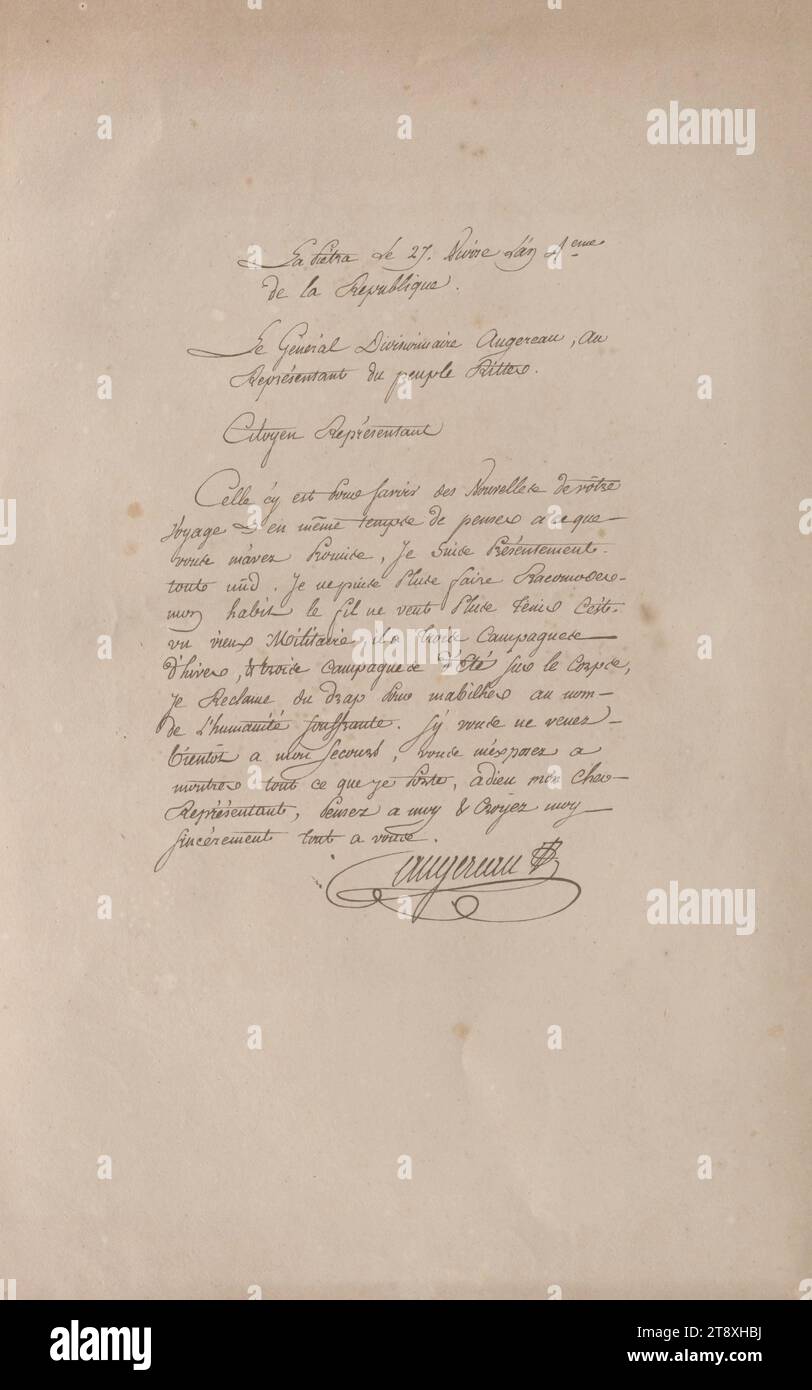 La Piétra le 27. Nivôse L'an 4eme
de la Republique.
Le Général Divisionnaire Augereau, au
Représentant du peuple Ritter.
Citoyen Représentant
Celle cy est pour savoir des Nouvelles de vôtre
Voyage & en même temps de penser a ce que
vous m'avez Promis, Je Suis Présentement
tout nûd. Je ne puis Plus faire Racomoder
mon habit le fil ne veut Plus tenir C'est
un vieux Militaire, il a trois Campagnes
d'hiver, & trois Campagnes d'Eté sur le Corps,
Je Reclame du drap pour mabilher au nom
de L'humanité souffrante. Sy vous ne venez
bientôt a mon secours, vous m'exposez a
montrer tout ce que je Porte, adieu mon cher
Représentant, Pensez a moy & Croyez moy
sincérement tout a vous.
augereau
a
alamy
alamy
Image ID: 2T8XHBJ
www.alamy.com